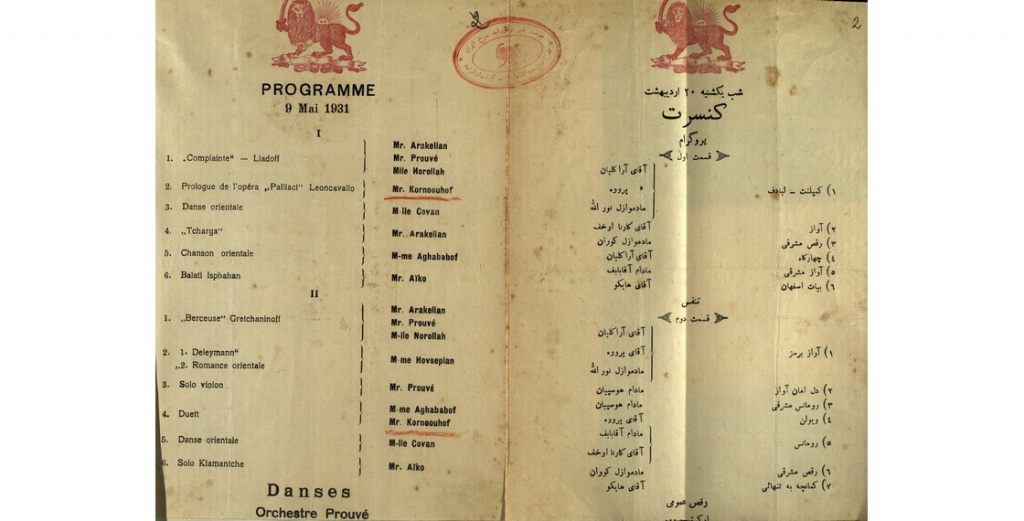 PROGRAMME
9 Mai 1931
I
1. „Complainte" — Liadoff
Mr. Arakelian
Mr. Prouvé
Mlle Norollah
2. Prologue de l'opéra „Palliaci" Leoncavallo Mr. Korneouhof
3. Danse orientale M-lle Covan
4. „Tcharga" Mr. Arakelian
5. Chanson orientale M-me Aghababof
6. Balati Isphahan Mr. Aïko
II
1. „Berceuse" Gretchaninoff
Mr. Arakelian
Mr. Prouvé
M-lle Norollah
2. 1. Deleymann"
„2. Romance orientale
M-me Hovsepian
3. Solo violon Mr. Prouvé
4. Duett
M-me Aghababof
Mr. Korneouhof
5. Danse orientale M-lle Covan
6. Solo Kiamantche Mr. Aïko
Danses
Orchestre Prouvé
2
شب یکشنبه ۲۰ اردیبهشت
کنسرت
پروگرام
قسمت اول
۱) کمپلنت ــ لیادف
آقای آراکلیان
« پرووه
مادموازل نور الله
۲) آواز آقای کارنا اوخف
۳) رقص مشرقی مادموازل کوران
۴) چهارگاه آقای آراکلیان
۵) آواز مشرقی مادام آقابابف
۶) بیات اصفهان آقای هایکو
تنفس
قسمت دوم
۱) آواز برسز
آقای آراکلیان
آقای پرووه
مادموازل نور الله
۲) دل امان آواز مادام هوسپیان
۳) رومانس مشرقی مادام هوسپیان
۴) ویوان آقای پرووه
۵) رومانس
مادام آقابابف
آقای کارنا اوخف
۶) رقص مشرقی مادموازل کوران
۷) کمانچه به تنهائی آقای هایکو
رقص عمومی